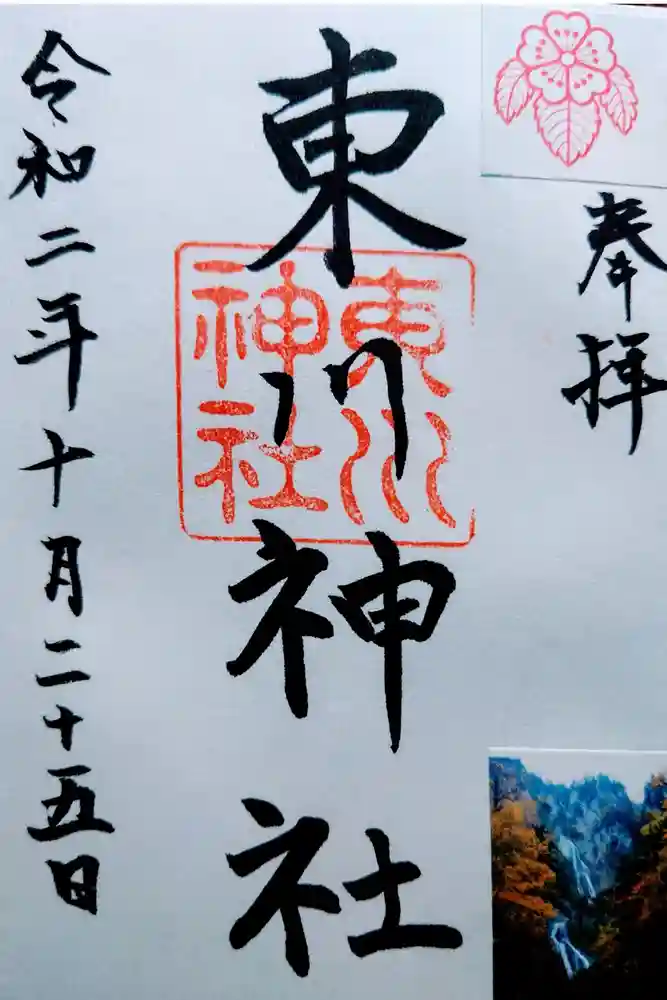 奉拝
東川神社
東川神社
令和二年十月二十五日